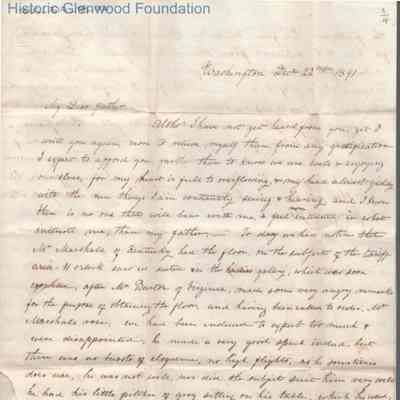 Historic Glenwood Foundation
Washington Decr 22nd 1841
My Dear father
Altho' I have not yet heard from you, yet I
write you again, more to relieve myself than from any gratification
I expect to afford you further than to know we are well & enjoying
ourselves, for my heart is full to overflowing, & my head almost giddy
with the new things I am continually seeing & hearing, and I know
there is no one that will bear with me, & feel interested in what
interests me, than my father. To day we
Mr Marshall of Kentucky had the floor, on the subject of the tariff
gallery, which was soon
after Mr of Virginia, made some very angry remarks
for the purpose of obtaining the floor and having been called to order. Mr
Marshall rose. we had been induced to expect too much &
were disappointed; he made a very good speech indeed, but
there was no bursts of eloquence, no high flights, as he sometimes
does use, he was not well, nor did the subject suit him very well
he had his little pitcher of grog sitting on his table, which he